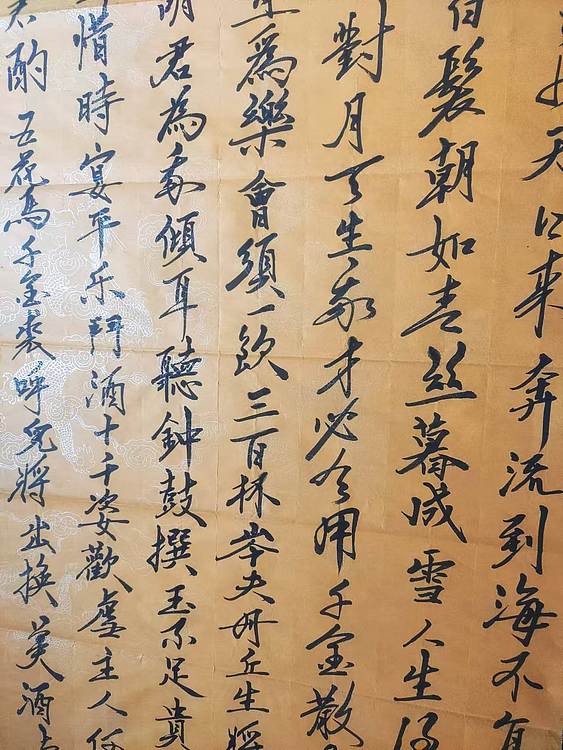 天上来奔流到海不
白髮朝如青丝暮成雪人生得
對月天生我才必有用千金散
且為樂會須一飲三百杯岑夫丹丘生將
君為我傾耳聽鐘鼓撰玉不足貴
惜時宴平乐鬥酒十千姿歡虐主人何
君酌五花馬千金裘呼兒將出換美酒